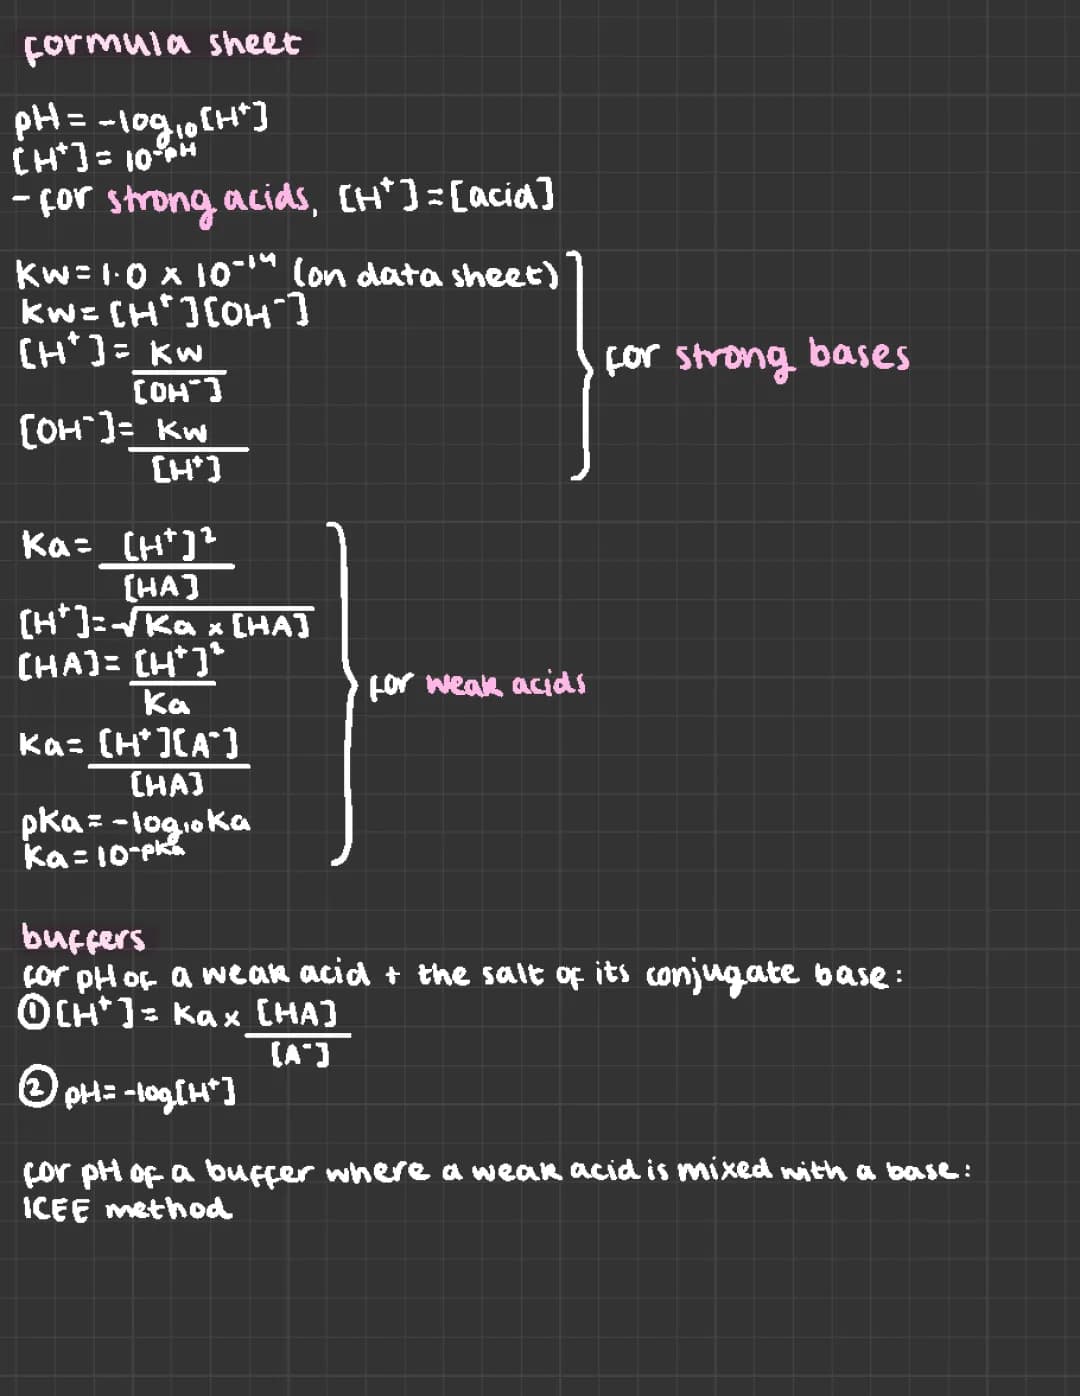 formula sheet
pH = -log₁₀[H⁺]
[H⁺] = 10⁻ᵖᴴ
- for strong acids, [H⁺] = [acid]
Kw = 1.0 x 10⁻¹⁴ (on data sheet)
Kw = [H⁺][OH⁻]
[H⁺] = Kw
[OH⁻]
for strong bases
[OH⁻] = Kw
[H⁺]
Ka = [H⁺]²
[HA]
[H⁺] = √Ka x [HA]
[HA] = [H⁺]²
Ka
for weak acids
Ka = [H⁺][A⁻]
[HA]
pKa = -log₁₀Ka
Ka = 10⁻ᵖᴷᵃ
buffers
for pH of a weak acid + the salt of its conjugate base:
① [H⁺] = Ka x [HA]
[A⁻]
② pH = -log[H⁺]
for pH of a buffer where a weak acid is mixed with a base:
ICEE method